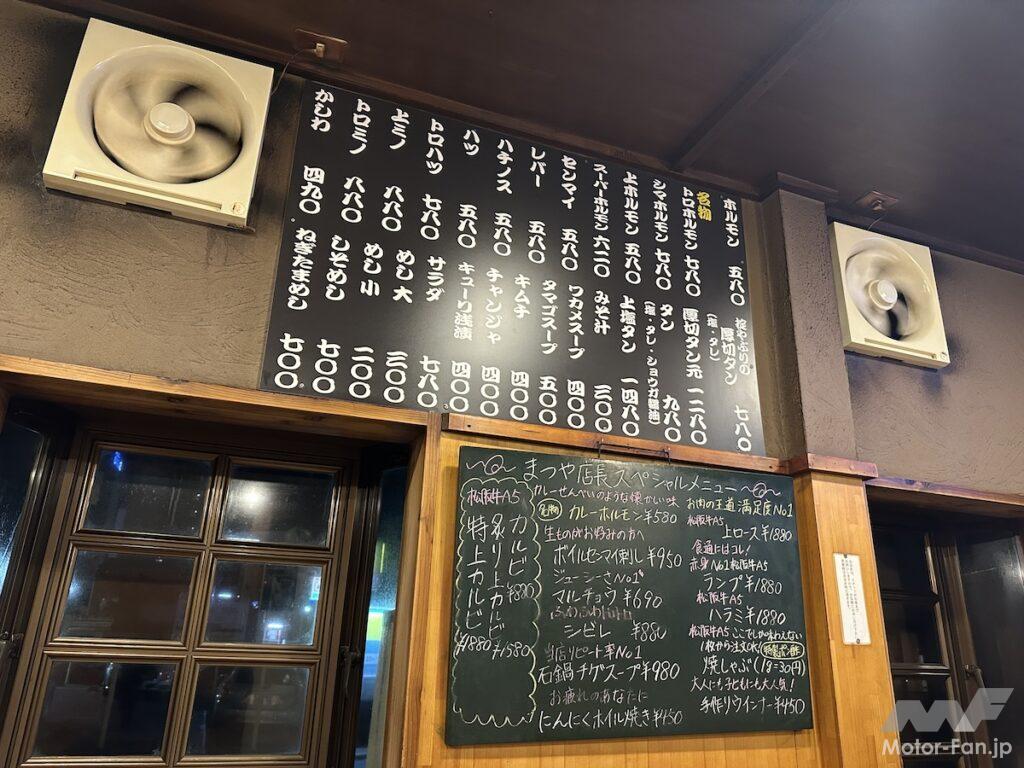 ホルモン 五八〇
名物
トロホルモン 七八〇
シマホルモン 七八〇
上ホルモン 五八〇
スーパーホルモン 六二〇
センマイ 五八〇
レバー 五八〇
ハチノス 五八〇
ハツ 五八〇
トロハツ 七八〇
上ミノ 八八〇
トロミノ 八八〇
かしわ 四九〇
掟やぶりの
厚切タン 七八〇
(塩・タレ)
厚切タン元 一二八〇
タン 九八〇
(塩・タレ・ショウガ醤油)
上塩タン 一四八〇
みそ汁 三〇〇
ワカメスープ 四〇〇
タマゴスープ 五〇〇
キムチ 四〇〇
チャンジャ 四〇〇
キューリ浅漬 四〇〇
サラダ 七八〇
めし 大 三〇〇
めし 小 二〇〇
しそめし 七〇〇
ねぎたまめし 七〇〇
まつや店長スペシャルメニュー
お肉の王道 満足度No1
松阪牛A5
上ロース ¥1880
食通にはコレ!
赤身No1 松阪牛A5
ランプ ¥1880
松阪牛A5
ハラミ ¥1880
松阪牛A5 ここでしか味わえない
1枚から注文OK!
焼しゃぶ(1g=30円)
大人にも子どもにも大人気!
手作りウインナー ¥450
カレーせんべいのような懐かしい味
名物 カレーホルモン ¥580
生ものがお好みの方へ
ボイルセンマイ刺し ¥950
ジューシーさNo1
マルチョウ ¥690
シビレ ¥880
当店リピート率No1
石鍋チゲスープ ¥980
お疲れのあなたに
にんにくホイル焼き ¥450
松阪牛A5
カルビ ¥880
上カルビ ¥1580
特上カルビ ¥1880
Motor-Fan.jp